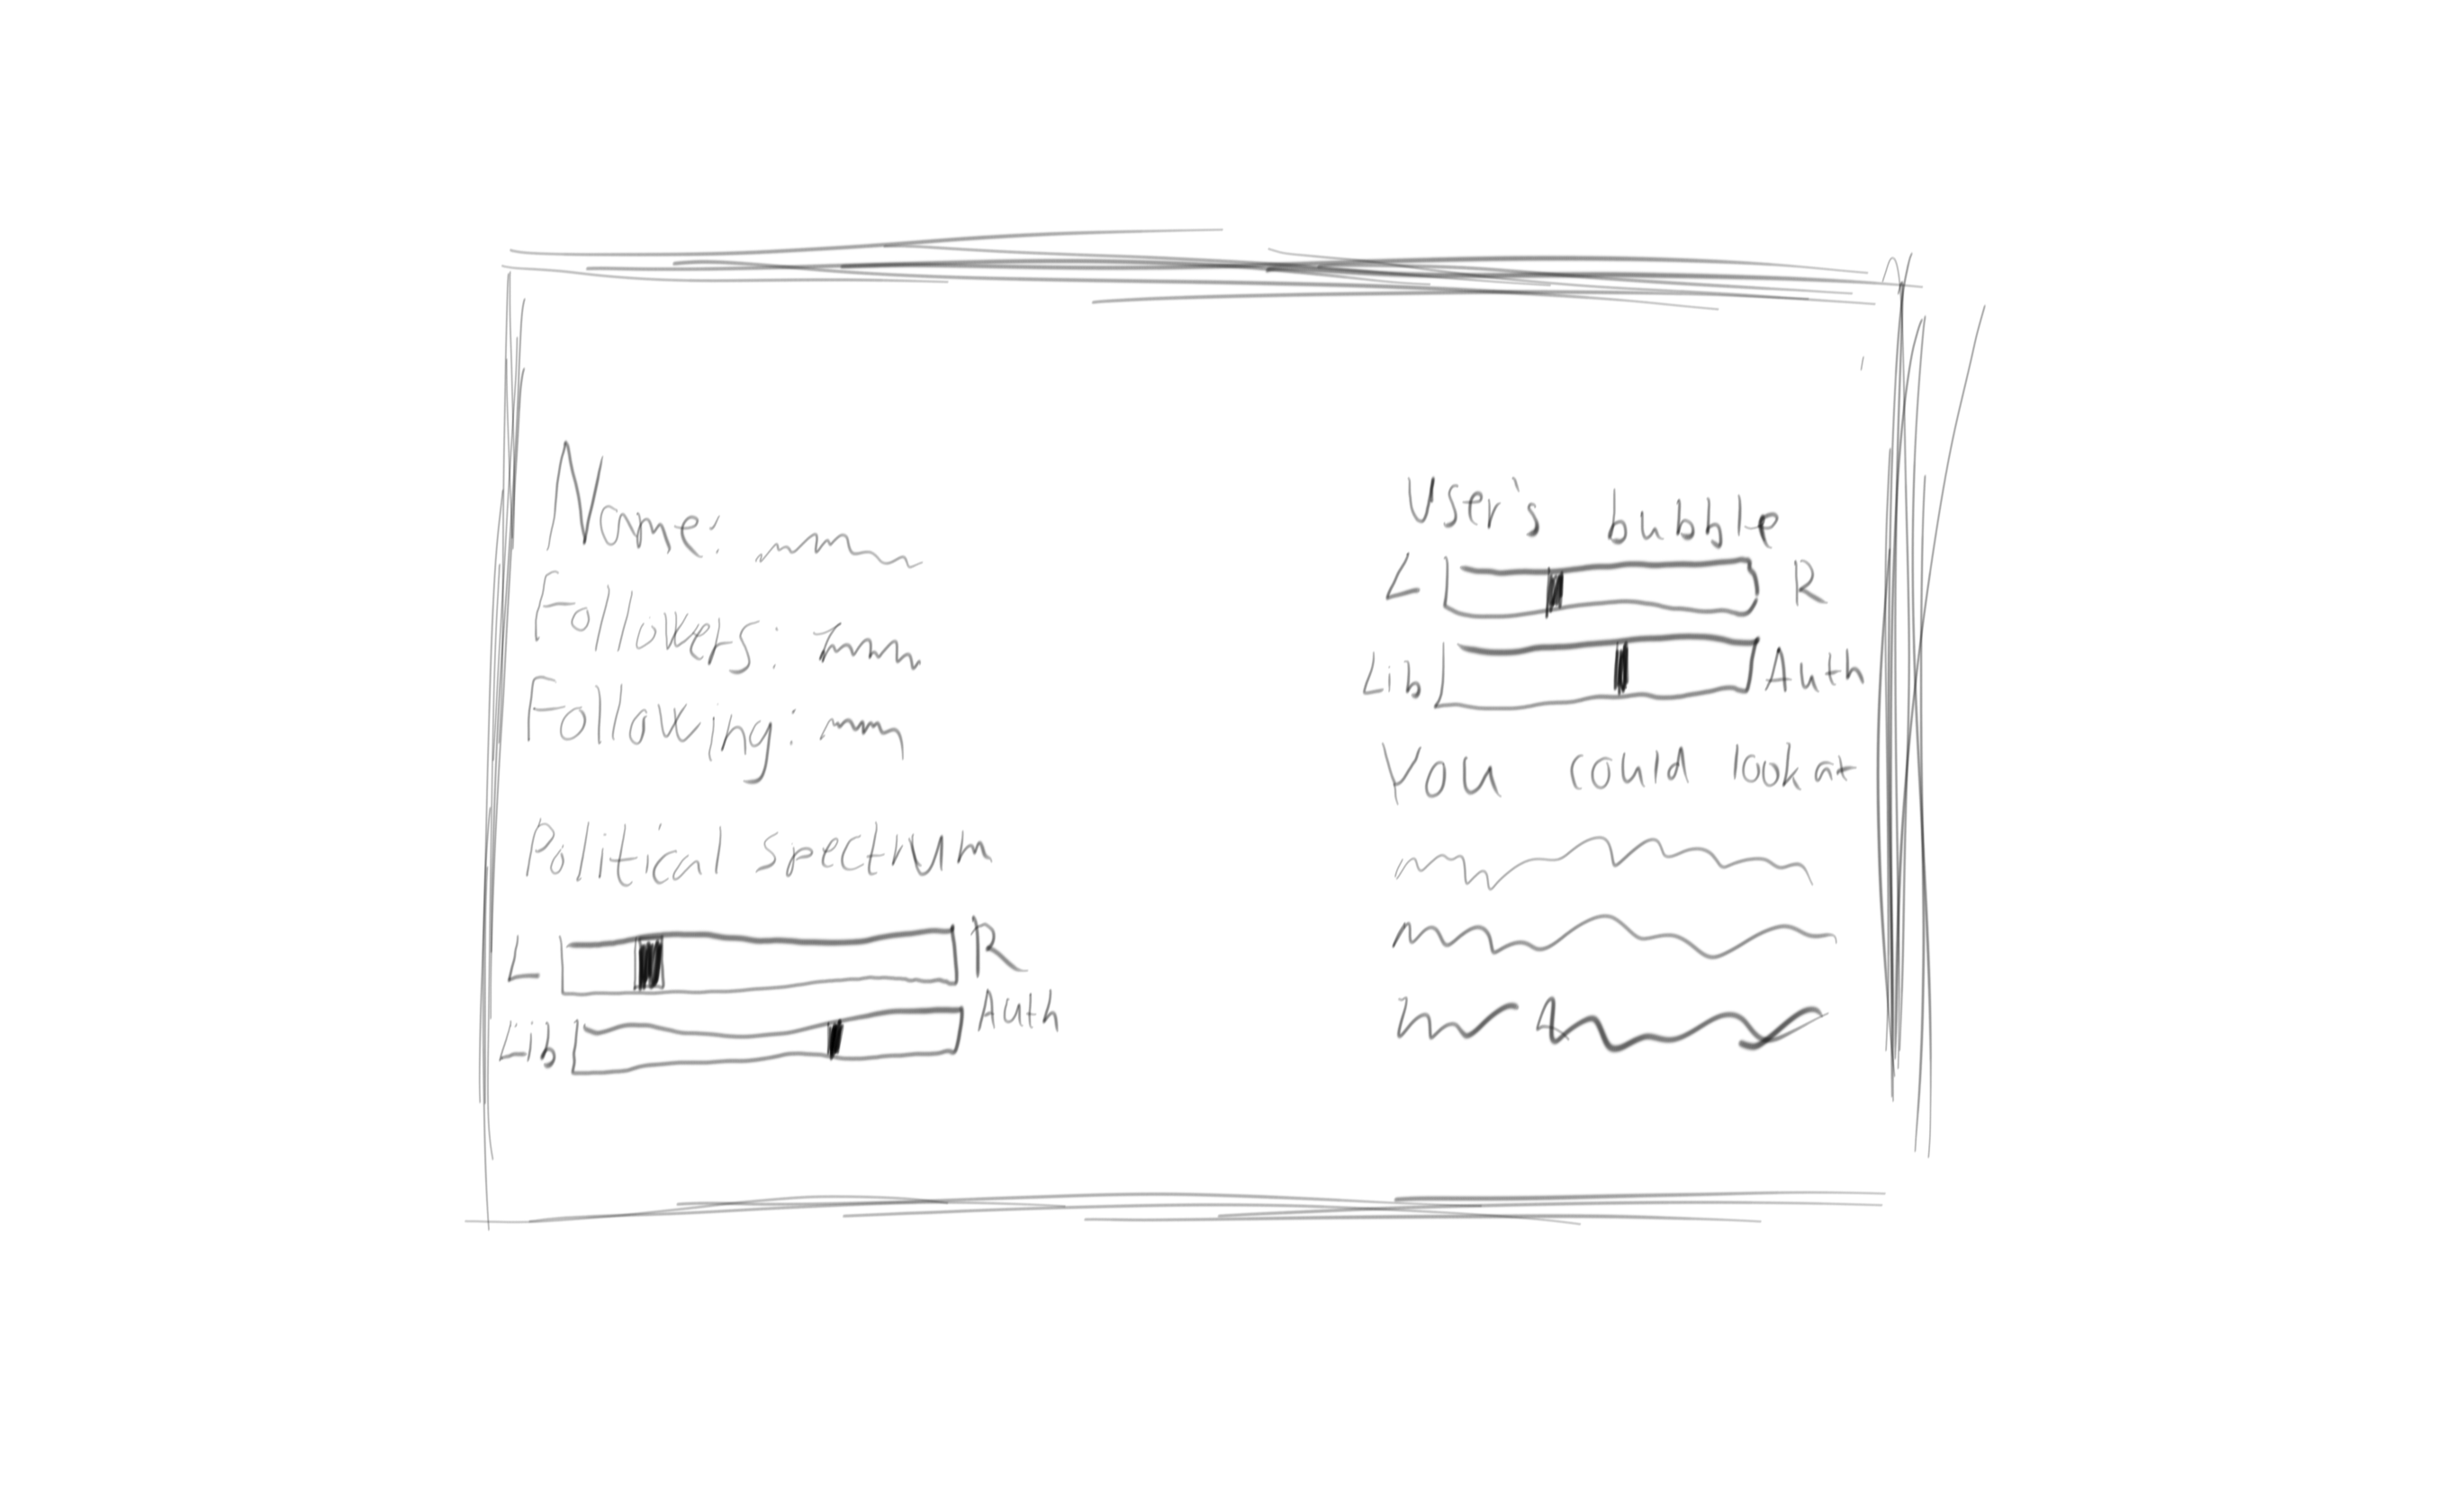 Name:
Followers:
Following:
Political spectrum
L R
Lib Auth
User's bubble
L R
Lib Auth
You could look at